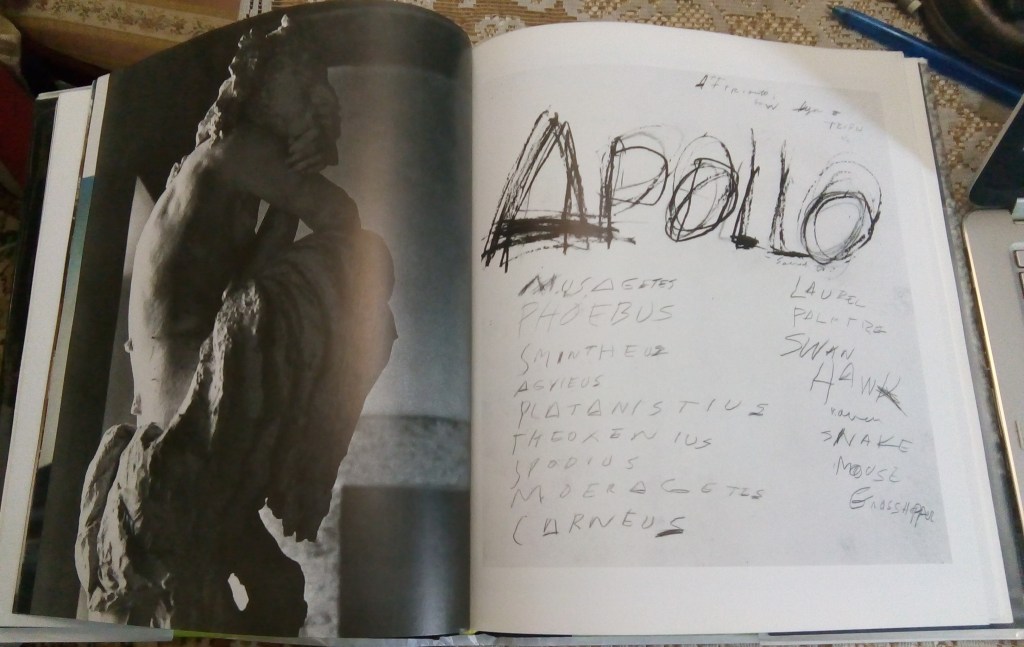 APOLLO
MUSAGETES
PHOEBUS
SMINTHEUS
AGVIEUS
PLATANISTIUS
THEOXENIUS
SPODIUS
MOERAGETES
CARNEUS
LAUREL
PALM TREE
SWAN
HAWK
raven
SNAKE
MOUSE